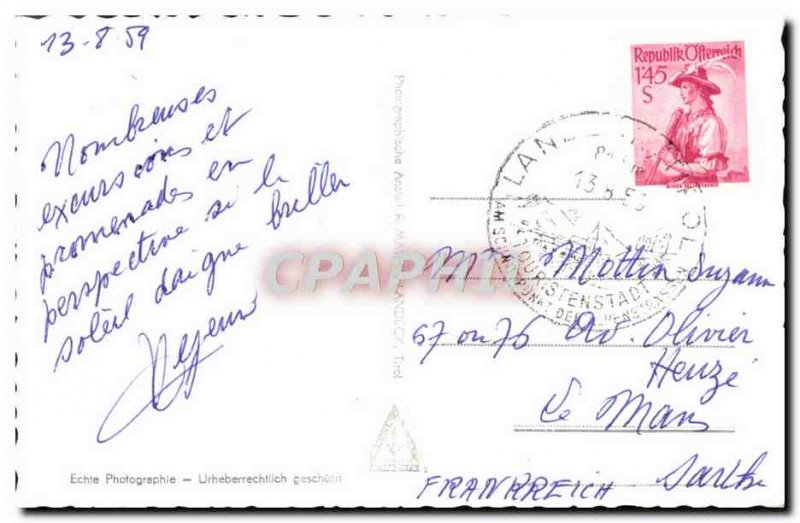 13-8-59
Nombreuses
excursions et
promenades en
perspective si le
soleil daigne briller
Republik Österreich
1'45
S
LAN
13.8.5
TOURISTENSTADT
Photographische Anstalt R. LANDECK, Tirol
CPAPHIL
Mme Mottin Suzann
67 ou 76 Av. Olivier
Heuzé
Le Mans
Sarthe
FRANKREICH
Echte Photographie – Urheberrechtlich geschützt